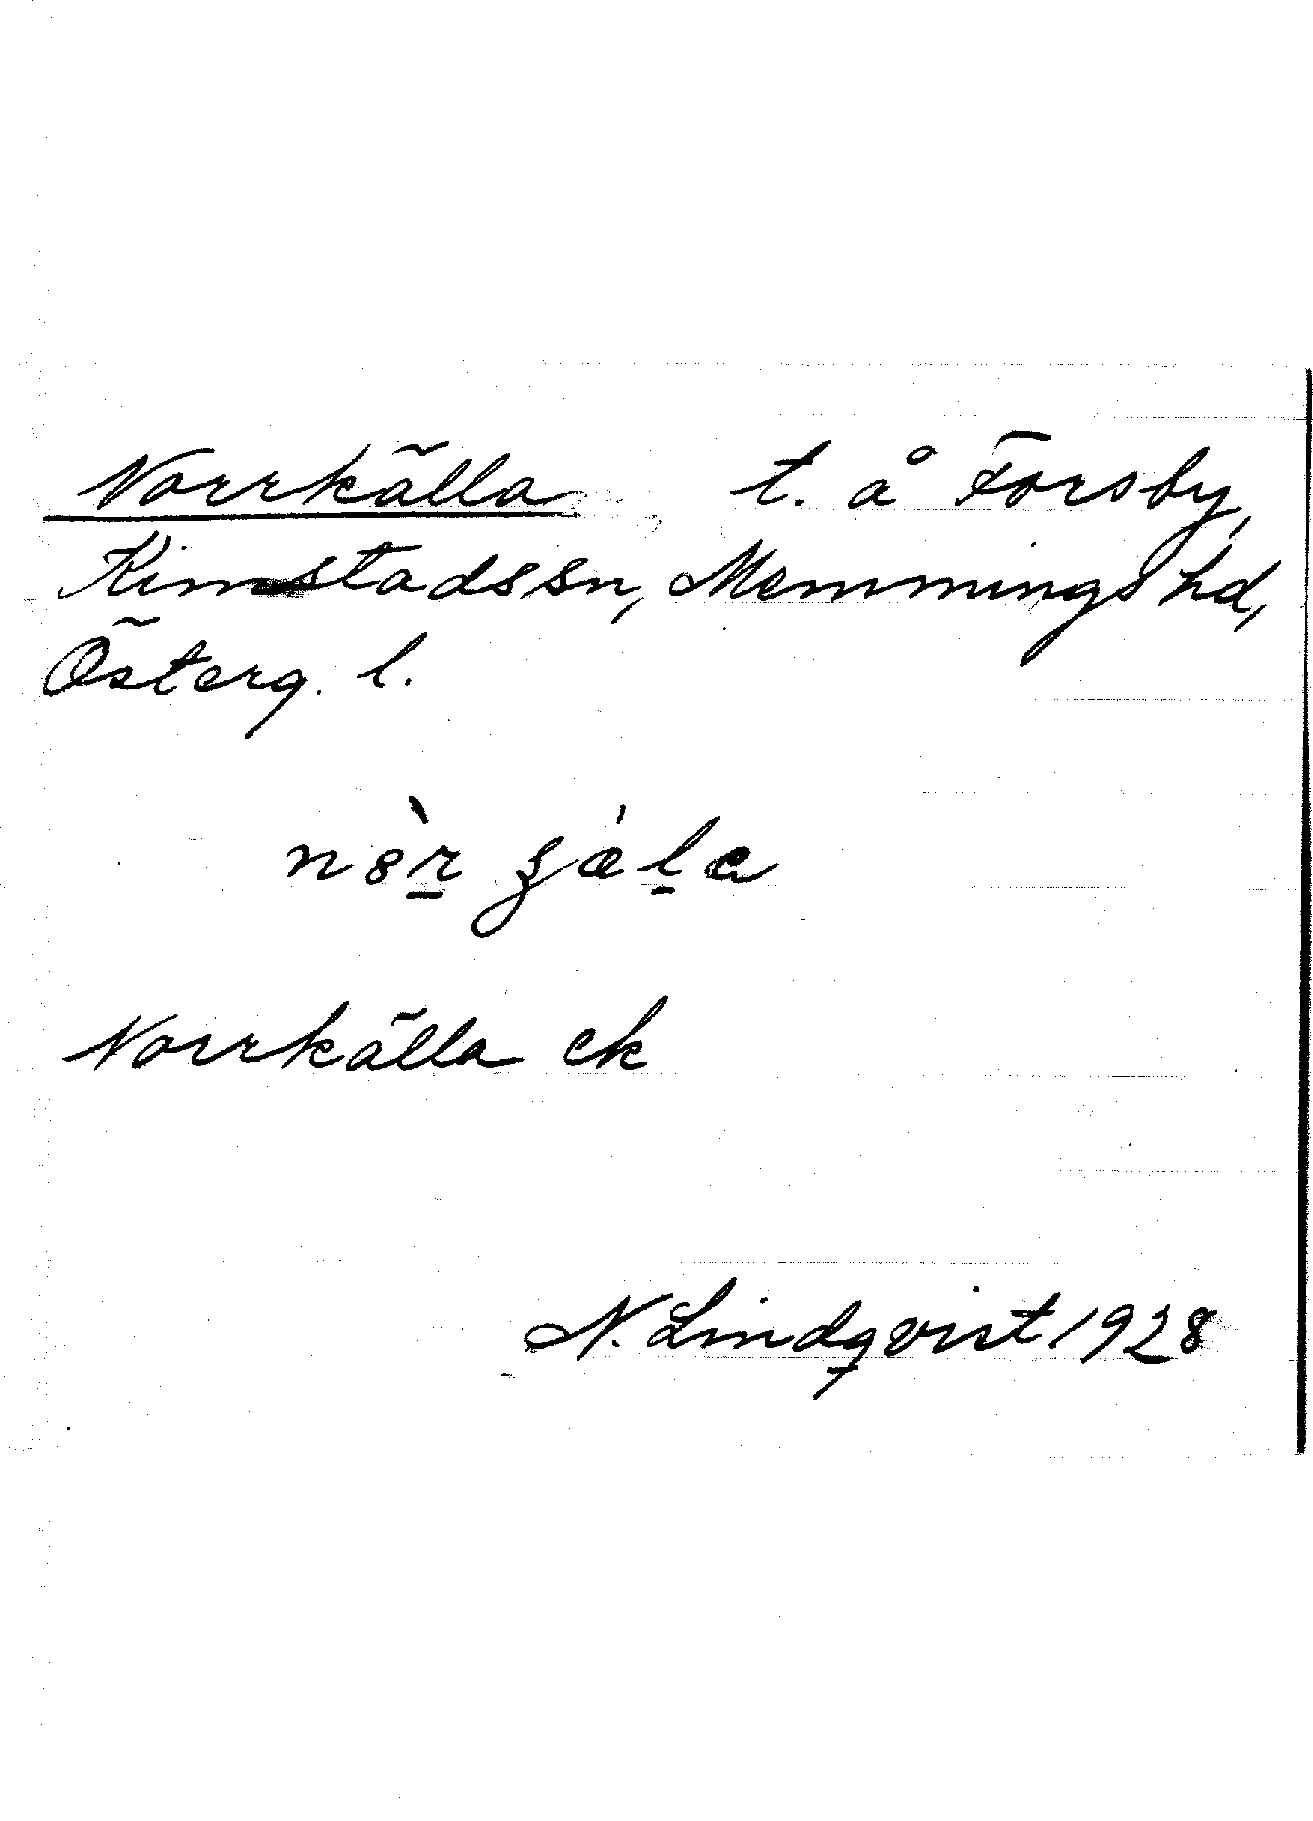 Norrkälla t. å Forsby,
Kimstads sn, Memmings hd,
Österg. l.
Norrkälla ek
N. Lindqvist 1928